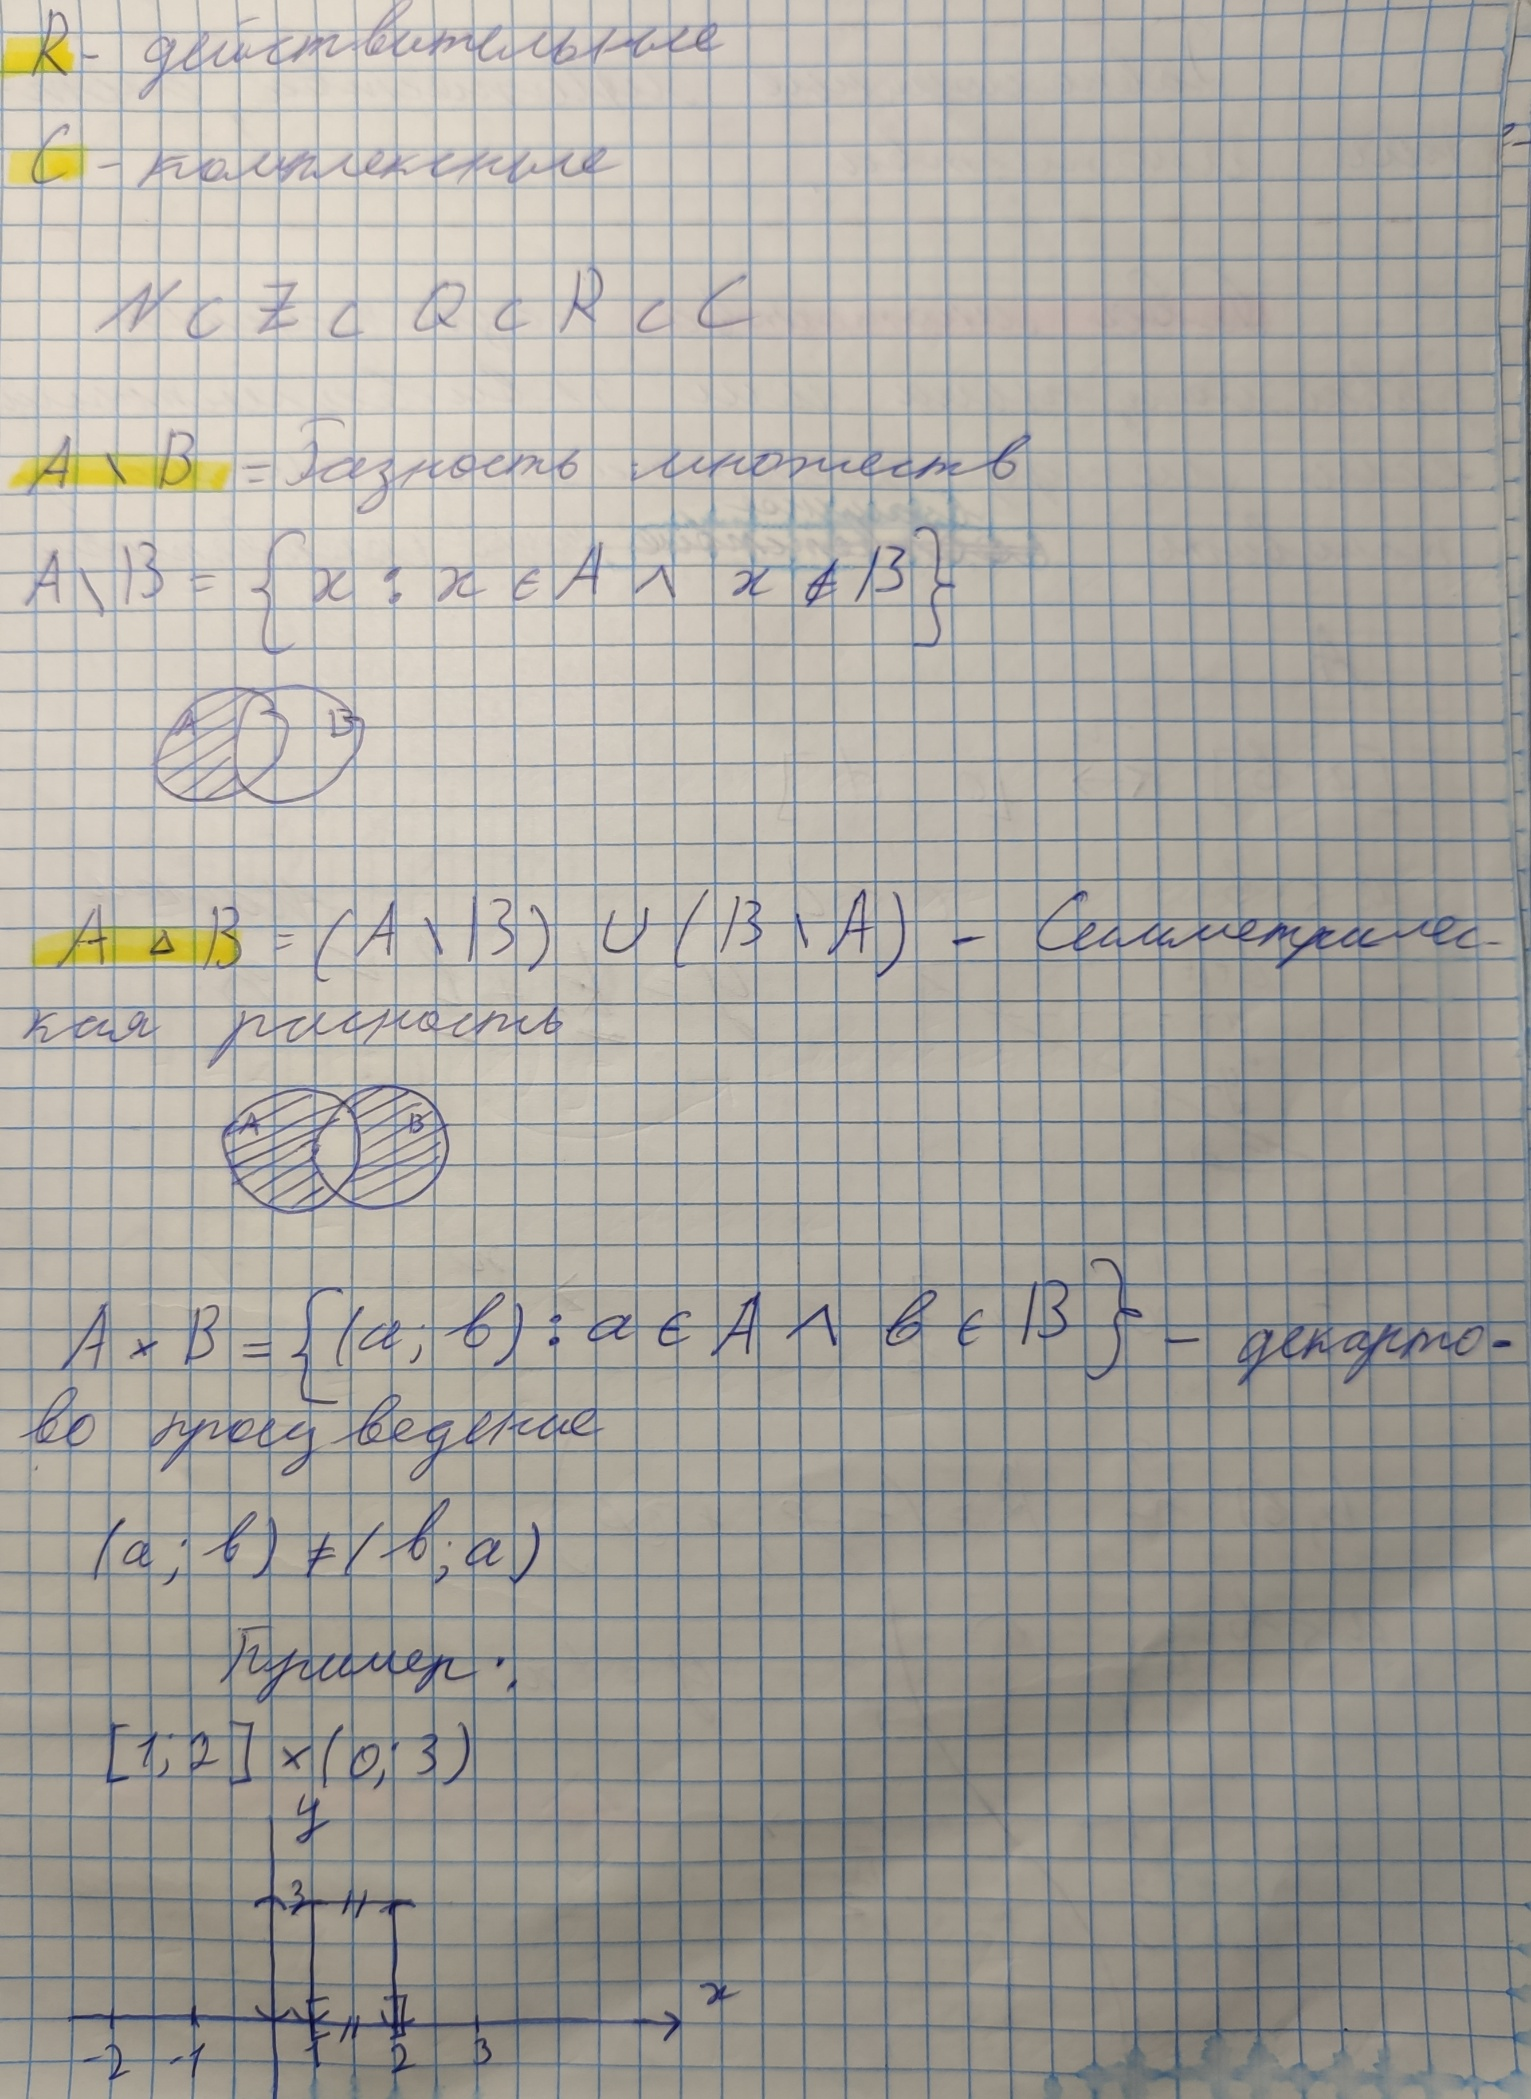 R - действительные
C - комплексные
N ⊂ Z ⊂ Q ⊂ R ⊂ C
A \ B = Разность множеств
A \ B = { x : x ∈ A ∧ x ∉ B }
A B
A △ B = (A \ B) ∪ (B \ A) - Симметричес-
кая разность
A B
A × B = { (a; b) : a ∈ A ∧ b ∈ B } - декарто-
во произведение
(a; b) ≠ (b; a)
Пример:
[1; 2] × (0; 3)
y
3
x
-2 -1 1 2 3